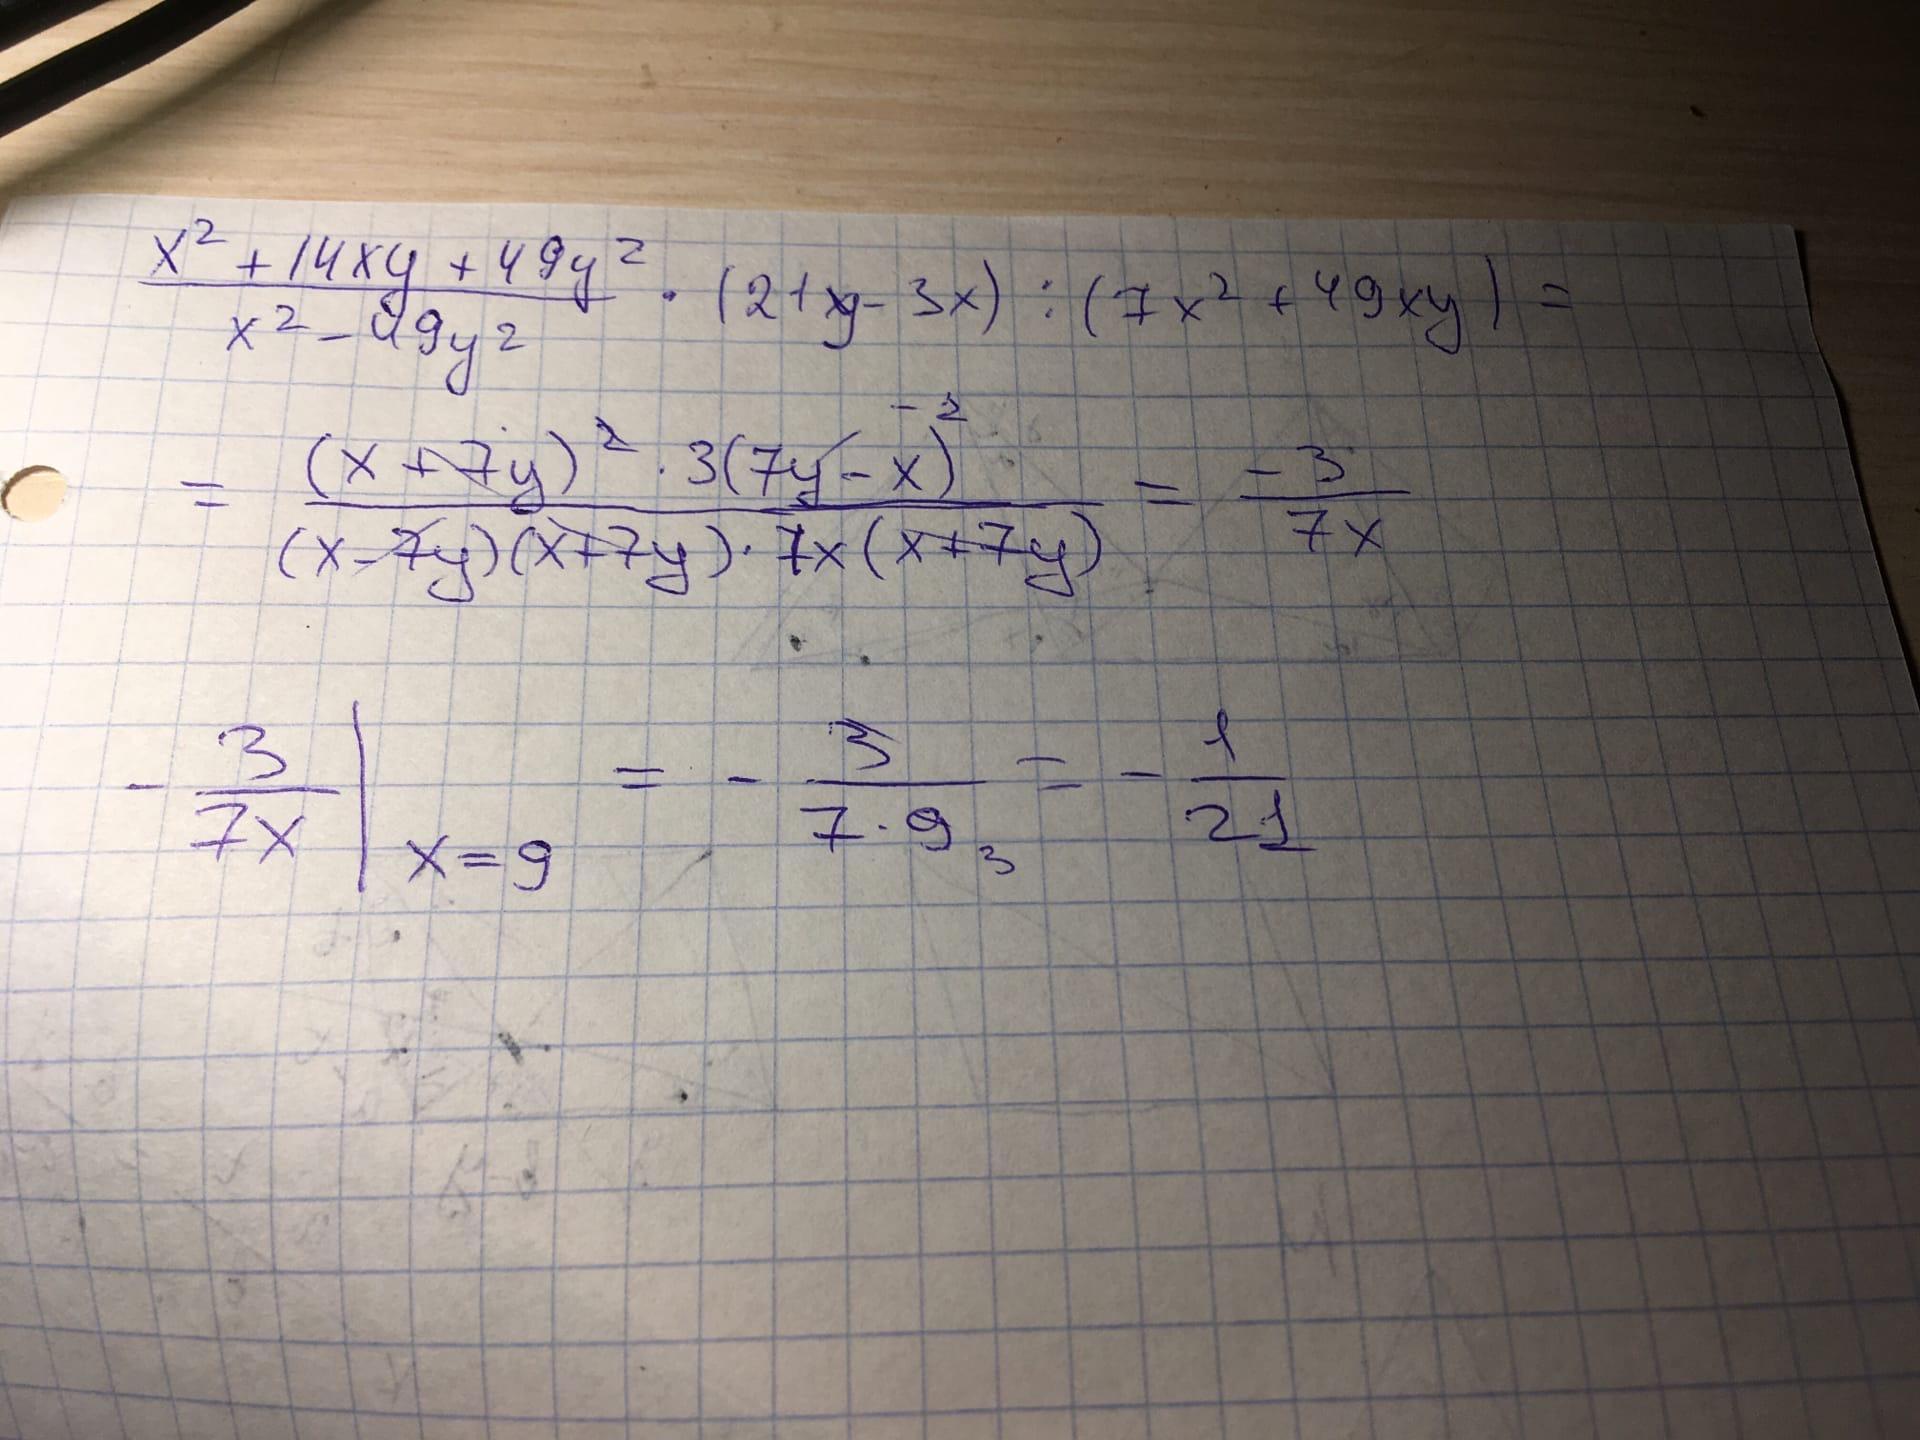 x² + 14xy + 49y² / x² - 49y² · (21y - 3x) : (7x² + 49xy) =
= (x + 7y)² · 3(7y - x) -2 / (x - 7y)(x + 7y) · 7x(x + 7y) = -3 / 7x
- 3 / 7x | x = 9 = - 3 / 7 · 9 3 = - 1 / 21